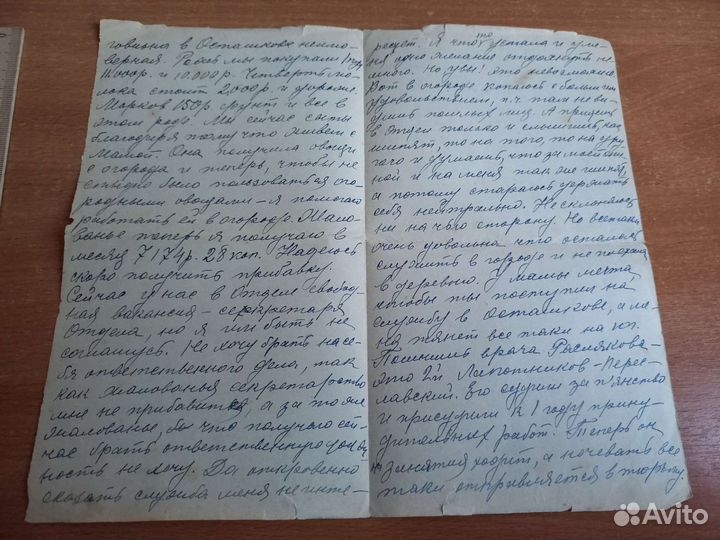 говизна в Осташкове неимо-
верная. Рожь мы покупали 1 пуд
и 10.000 р. Четверть мо-
лока стоит 2000 р и дороже.
Морковь 150 р фунт и все в
этом роде. Мы сейчас сыты
благодаря тому что живем с
Мамой. Она получила овощи
с огорода и теперь, чтобы не
стыдно было пользоваться ого-
родными овощами - я помогаю
работать ей в огороде. Жало-
ванье теперь я получаю в
месяц 7174 р. 28 коп. Надеюсь
скоро получить прибавку.
Сейчас у нас в Отделе свобод-
ная вакансия - секретаря
Отдела, но я быть не
соглашусь. Не хочу брать на се-
бя ответственного дела, так
как жалованья секретарство
мне не прибавит, а за то же
жалованье, что получаю сей-
час брать ответственную долж-
ность не хочу. Да откровенно
сказать служба меня не инте-
ресует. Я что то устала и у ме-
ня одно желание отдохнуть не-
много. Но увы! это невозможно
Вот в огороде копаюсь с большим
удовольствием, т.ч. там не ви-
дишь лиц. А придешь
в Отдел только и слышишь, как
то на того, то на дру-
гого и думаешь, что за моей спи-
ной и на меня так же
а потому стараюсь держать
себя нейтрально. Не склоняюсь
ни на чью сторону. Но все таки
очень довольна что осталась
служить в городе и не поехала
в деревню. У мамы мечта
чтобы ты поступил на
службу в Осташкове, а ме-
ня тянет все таки на юг.
Помнишь врача Рыслякова -
это 2й Лапотников - Перес-
лавский. Его судили за пьянство
и присудили к 1 году прину-
дительных работ. Теперь он
на занятия ходит, а ночевать все
таки отправляется в тюрьму.
Avito